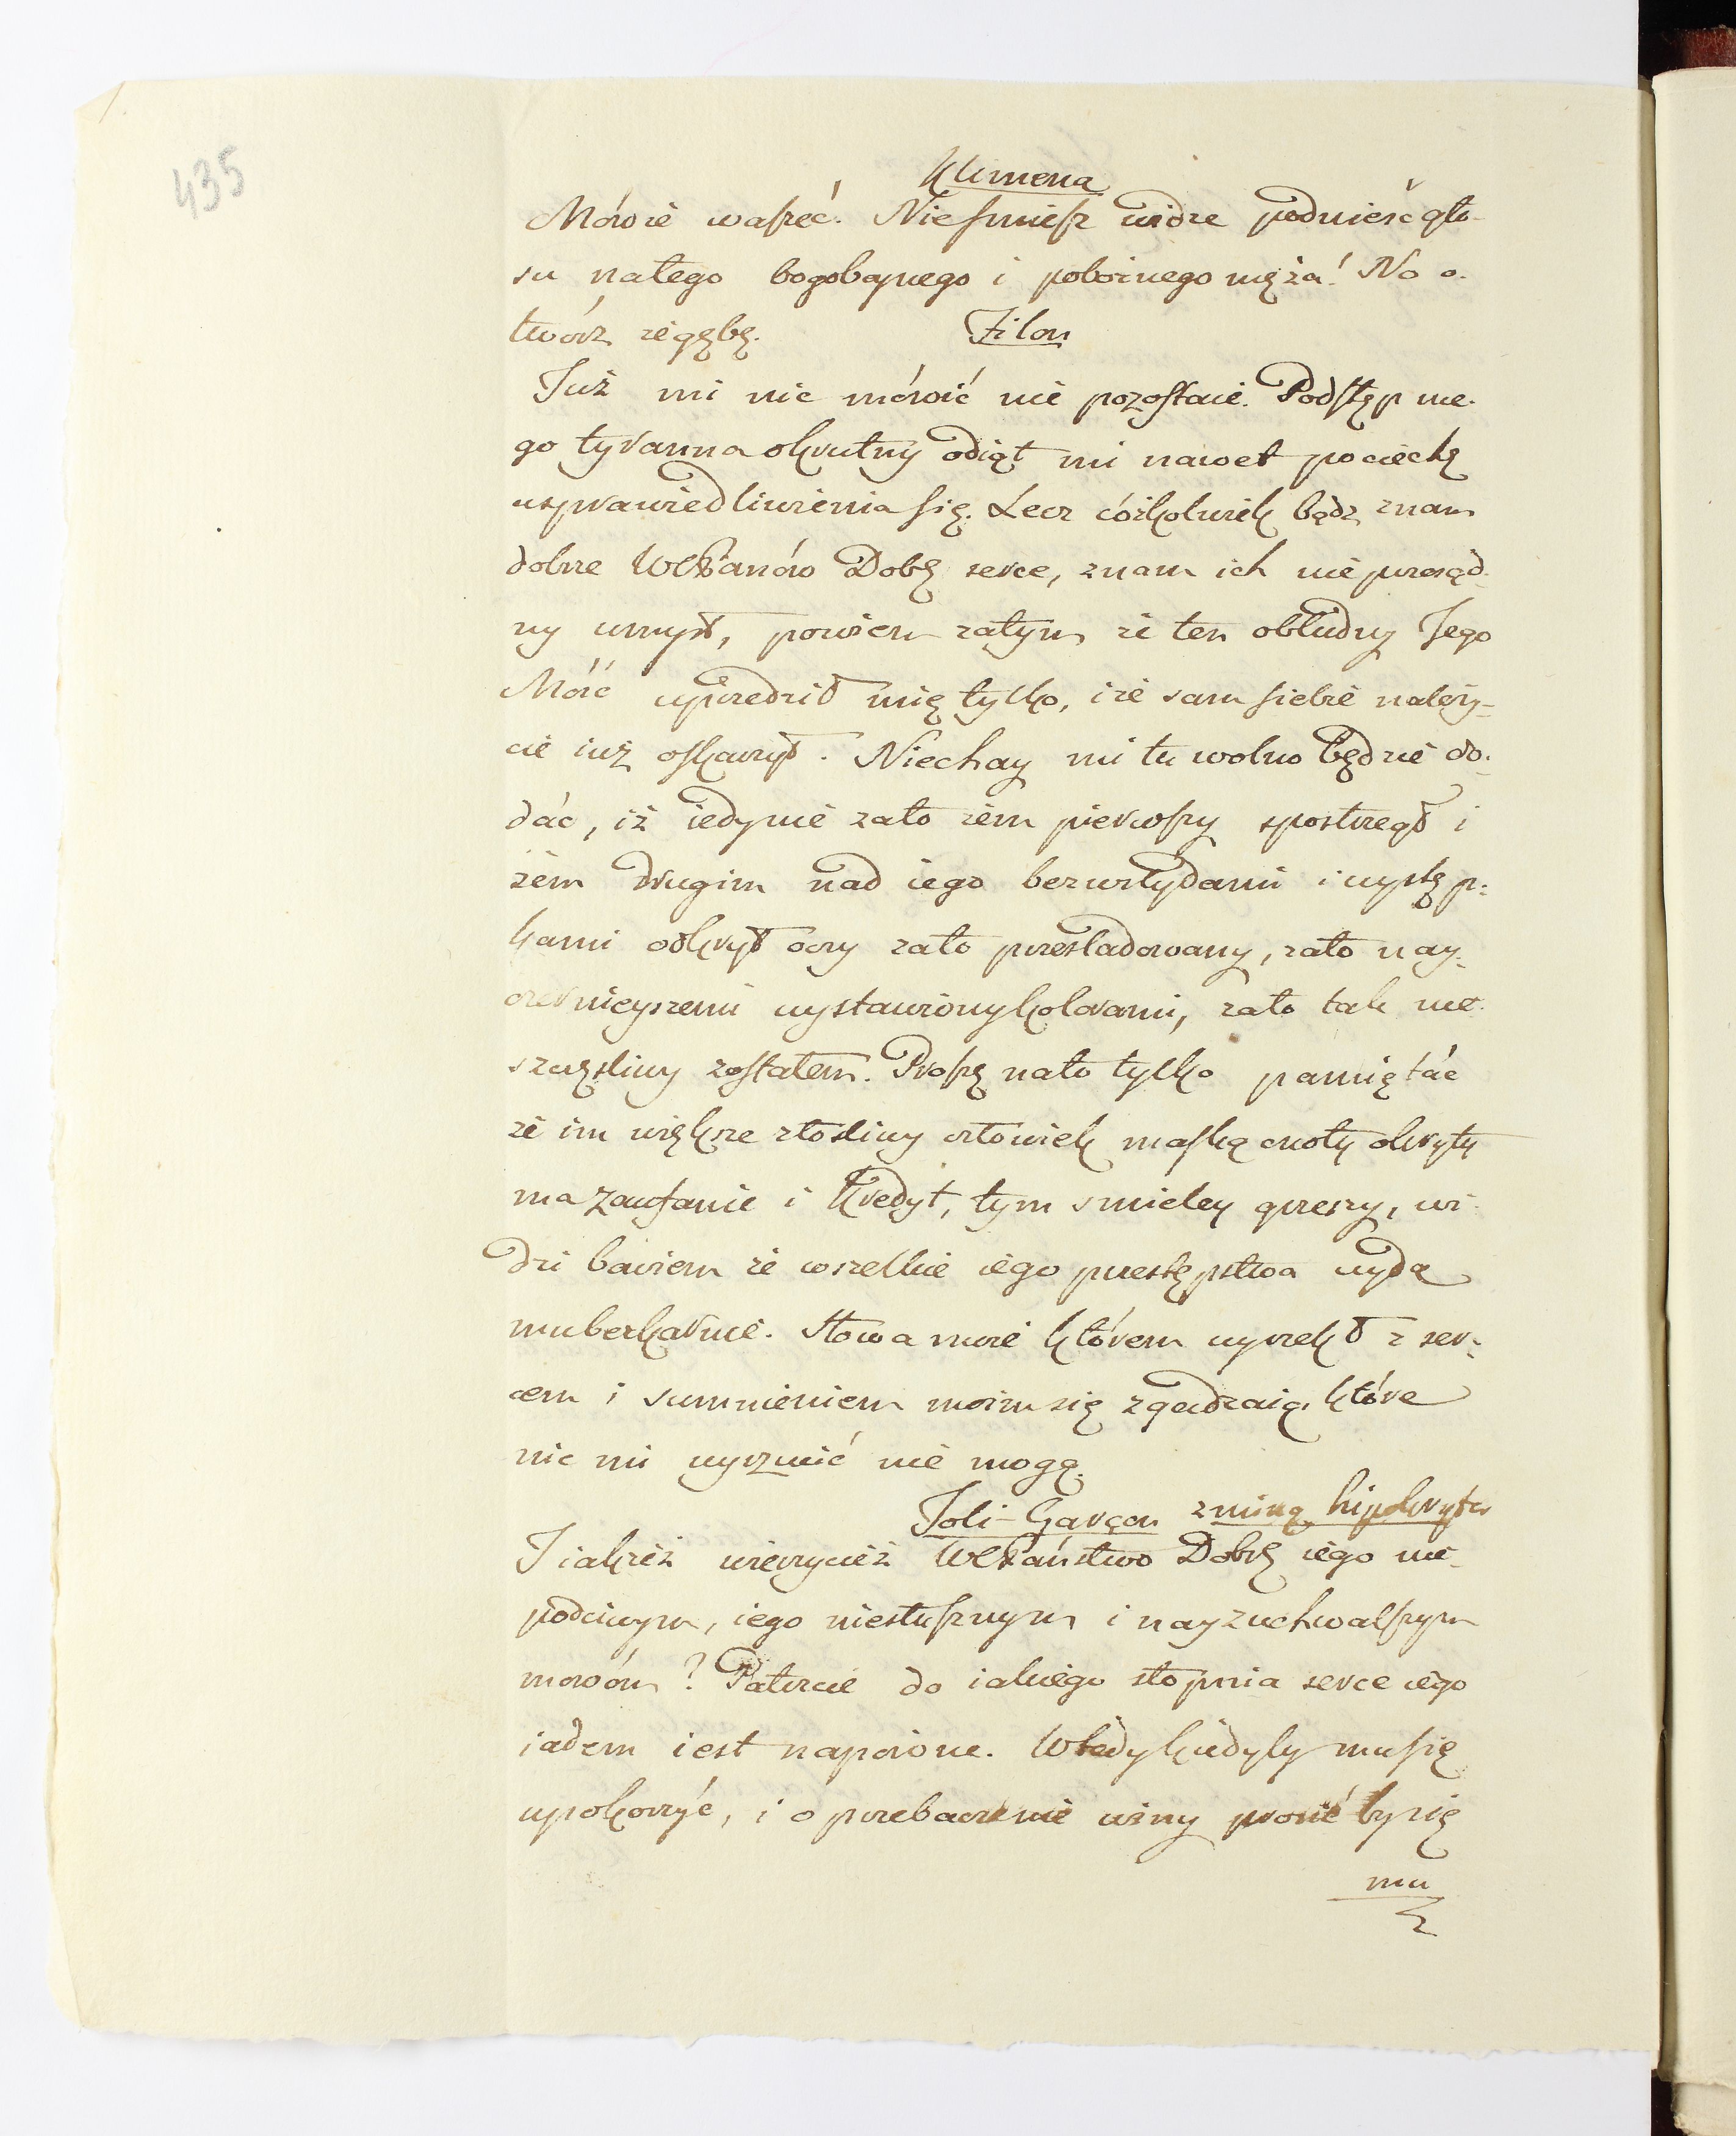 435
Klimena
Mówże waszeć. Nieśmiesz widzę podnieść gło-
su natego bogobojnego i pobożnego męża! No o-
twórz żegębę. Filon
Już mi nic mówić nie pozostaie. Podstęp me-
go tyranna okrutny odiął mi nawet pociechę
usprawiedliwienia się. Lecz cóżkolwiek bądź znam
dobrze WPanów Dobr serce, znam ich nieprzesąd-
ny umysł, powiem zatym że ten obłudny Jego
Mość uprzedził mię tylko, iże sam siebie należy-
cie iuż oskarżył. Niechay mi tu wolno będzie do-
dać, iż iedynie zato żem pierwszy spostrzegł i
żem drugim nad iego bezwstydami i występ-
kami odkrył oczy zato prześladowany, zato nay-
czarnieyszemi wystawiony kolorami, zato tak nie-
szczęśliwy zostałem. Proszę nato tylko pamiętać
że im większe złośliwy człowiek maską cnoty okryty
ma zaufanie i kredyt, tym śmieley grzeszy, wi-
dzi bowiem że wszelkie iego przestępstwa uydą
mubezkarnie. Słowa moie którem wyrzekł z ser-
cem i sumnieniem moim się zgadzaią, które
nic mi wyrzucić nie mogą.
Joli-Garçon zminą hipokryty
I iakież wierzycież WPaństwo Dobr iego nie-
poczciwym, iego niesłusznym i nayzuchwalszym
mowóm? Patrzcie do iakiego stopnia serce iego
iadem iest napoione. Wtedy kiedyby musię
upokorzyć, i o przebaczenie winy prosić by się
mu